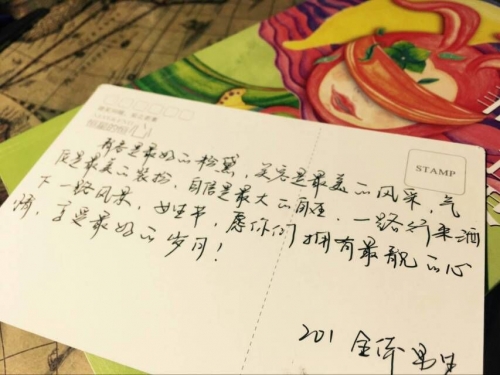 STAMP
青春是最好的粉黛，笑容是最美的风采，气
质是最美的装扮，自信是最大的自在，一路行来洒
下一路风景，女生节，愿你们拥有最靓的心
情，享受最好的岁月！
201 全体男生